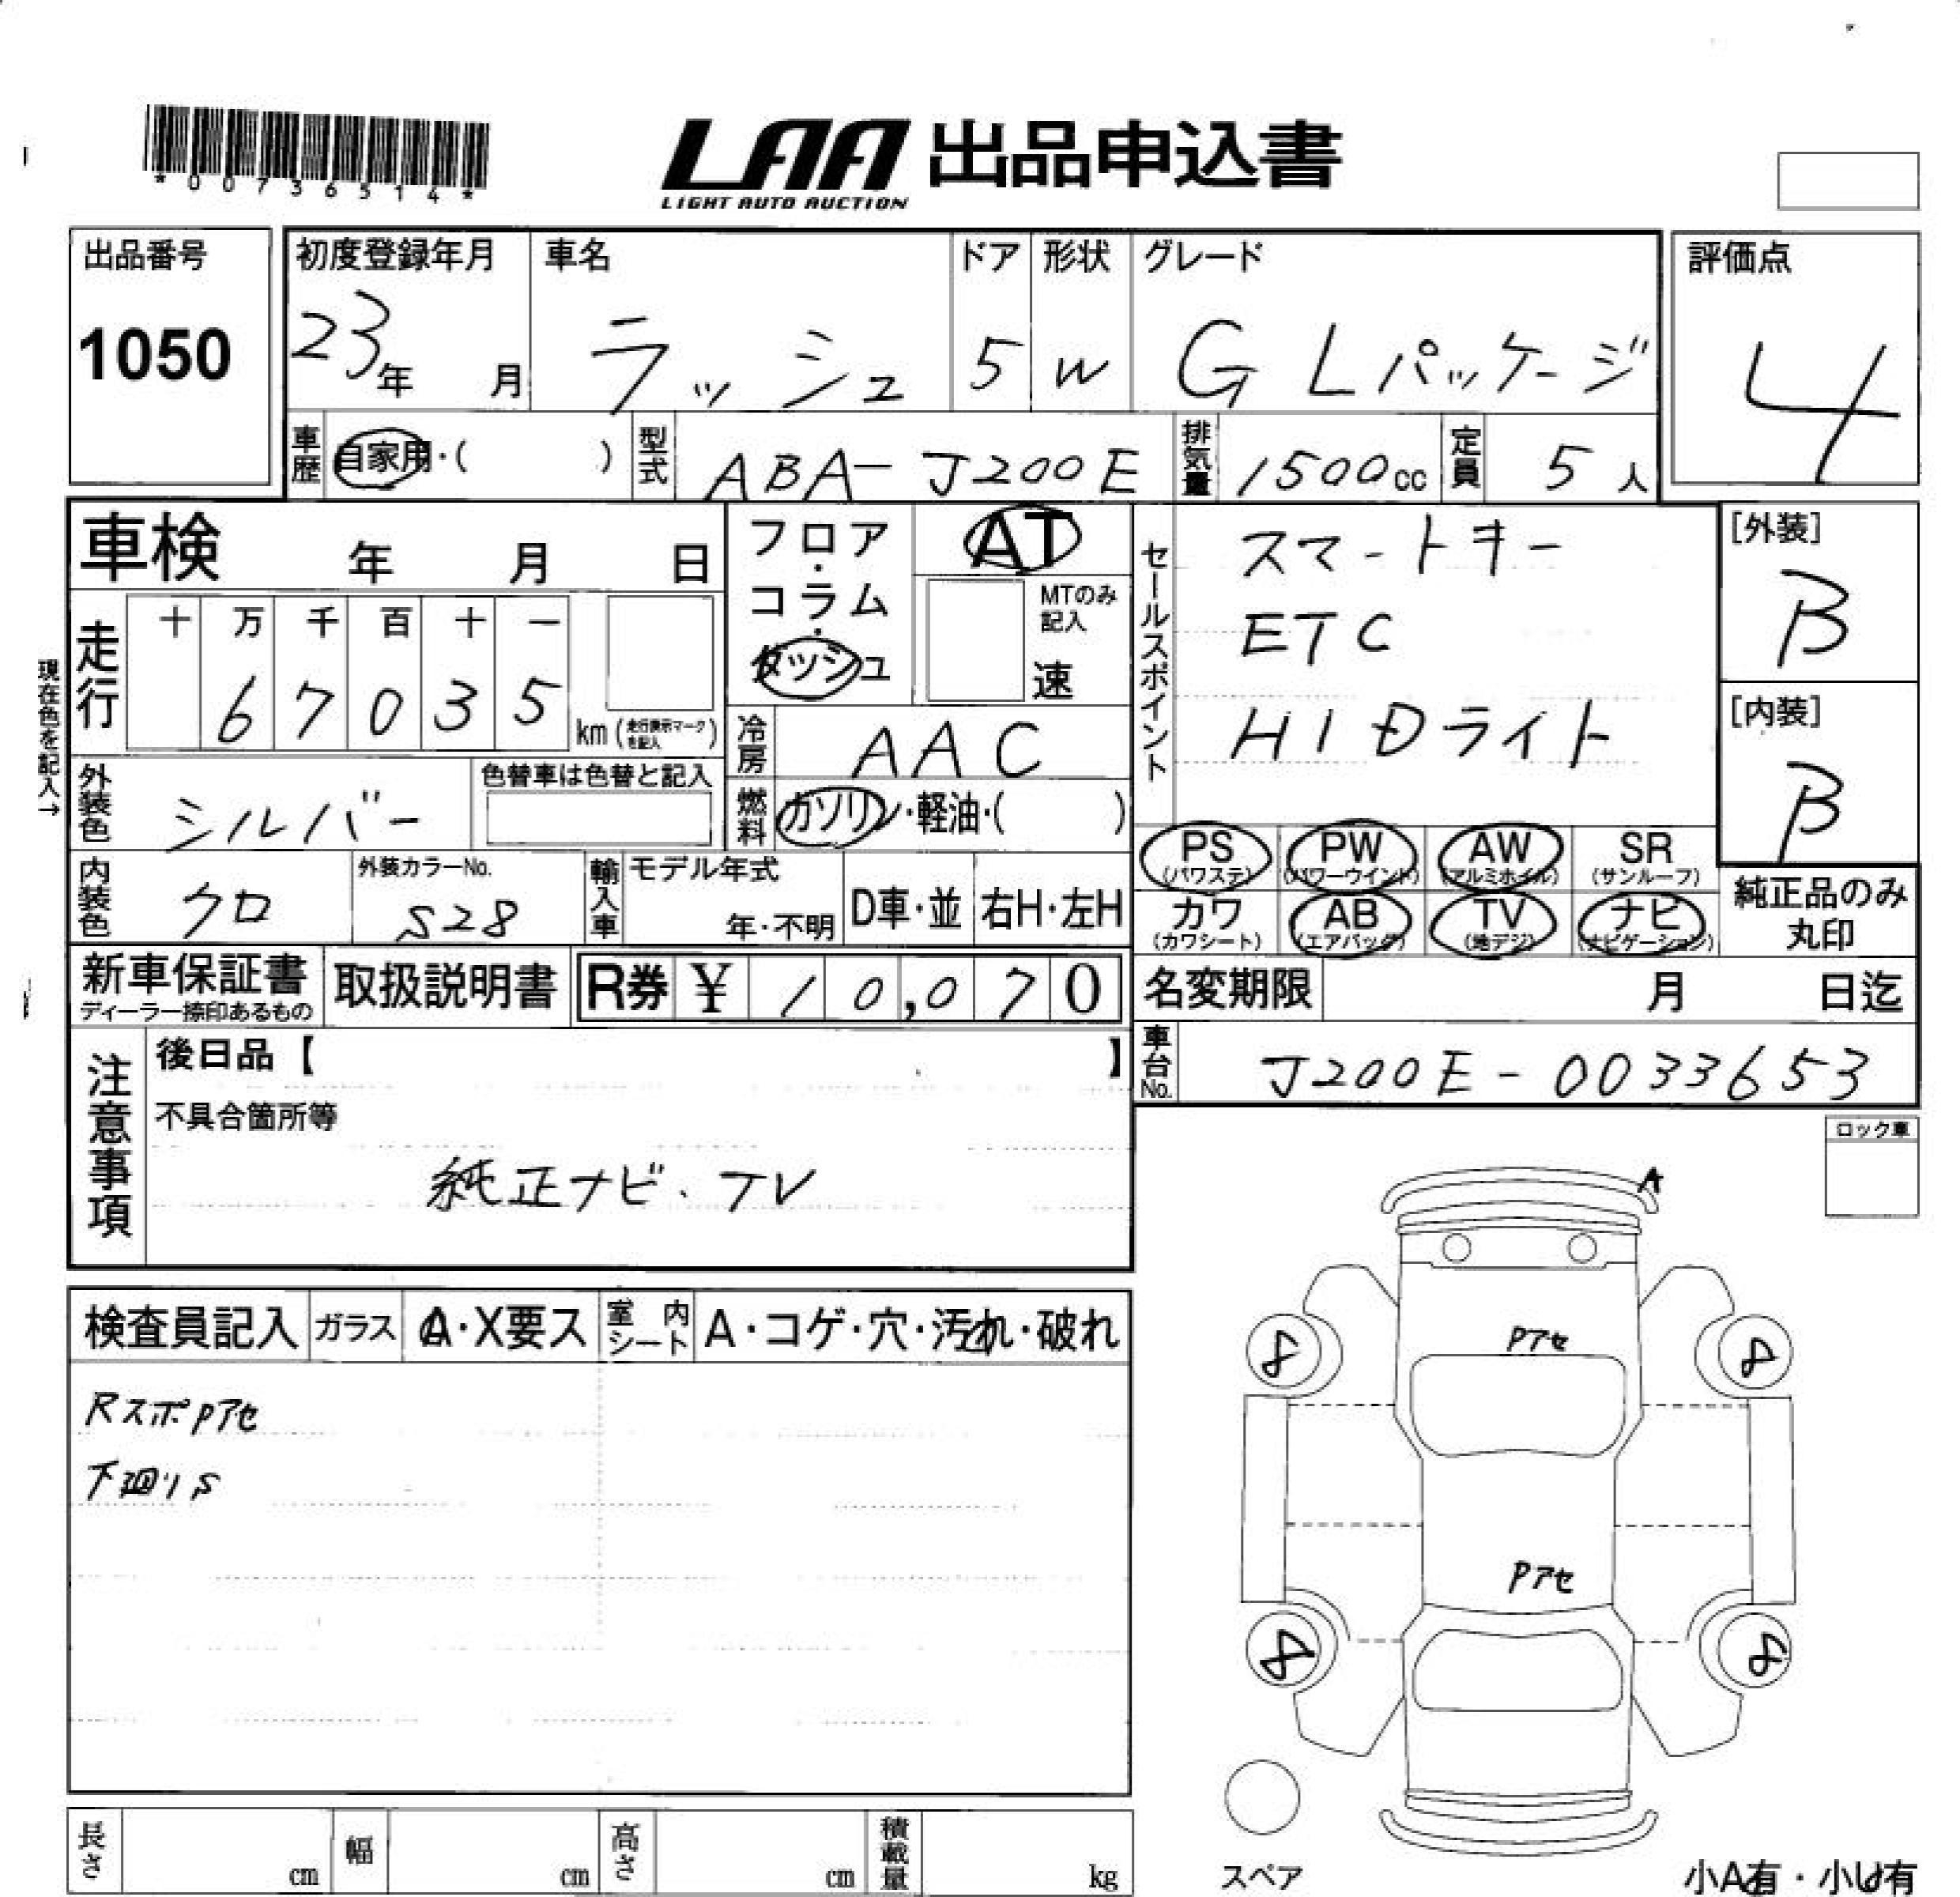 *00736514*
LAA 出品申込書
LIGHT AUTO AUCTION
出品番号
1050
初度登録年月
23年 月
車名
ラッシュ
ドア
5
形状
W
グレード
G Lパッケージ
評価点
4
車歴 自家用・( )
型式 ABA-J200E
排気量 1500cc
定員 5人
車検 年 月 日
フロア・コラム・ダッシュ
AT
MTのみ記入
速
セールスポイント
スマートキー
ETC
HIDライト
[外装]
B
[内装]
B
現在色を記入→
走行
十 万 千 百 十 一
6 7 0 3 5
km (走行表示マークを記入)
冷房 AAC
外装色 シルバー
色替車は色替と記入
燃料 ガソリン・軽油・( )
PS (パワステ)
PW (パワーウインド)
AW (アルミホイル)
SR (サンルーフ)
カワ (カワシート)
AB (エアバッグ)
TV (地デジ)
ナビ (ナビゲーション)
純正品のみ丸印
内装色 クロ
外装カラーNo.
S28
輸入車
モデル年式
年・不明
D車・並
右H・左H
新車保証書
ディーラー捺印あるもの
取扱説明書
R券 ¥ 10,070
名変期限 月 日迄
車台No. J200E-0033653
注意事項
後日品【 】
不具合箇所等
純正ナビ、TV
ロック車
検査員記入
ガラス A・X要ス
室内シート A・コゲ・穴・汚れ・破れ
RスポPアセ
下廻りS
A
Pアセ
8
8
Pアセ
8
8
スペア
長さ cm
幅 cm
高さ cm
積載量 kg
小A有・小U有